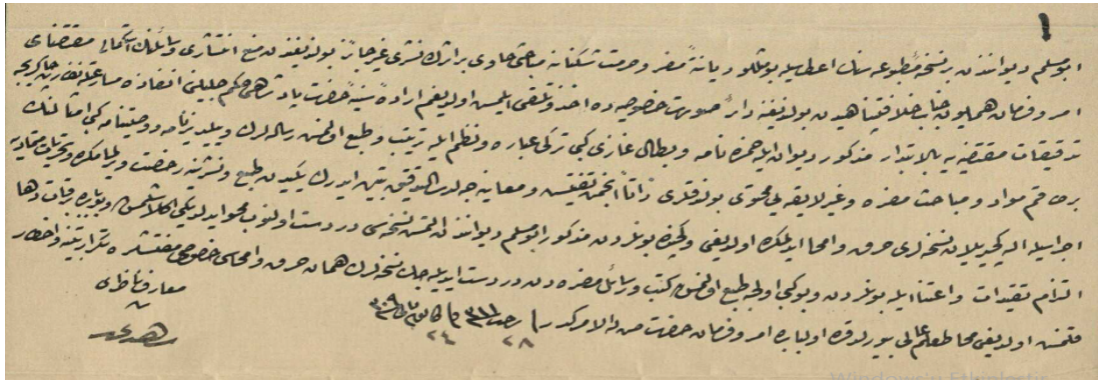 ١
ابو مسلم ديواننڭ بر نسخهٔ مطبوعه سنڭ اعطاسيله بو مثللو ديانةً مضر و حرمت شكنانه مباحثى حاوى بر اثرڭ نشرى غير جائز بولنديغندن منع انتشارى وسائلنڭ استكمالى مقتضاى
امر و فرمان همايون جناب خلافتپناهيدن بولنديغنه دائر صورت خصوصيه ده اخذ و تلقى ايلمش اولديغم ارادهٔ سنيهٔ حضرت پادشاهى حكم جليلنى انفاذه مسارعتله
تدقيقات مقتضيه يه بالابتدار مذكور ديوان ايله حمزه نامه و بطال غازى كبى تركى عباره و نظم ايله ترتيب و طبع اولنمش رساله لرڭ و ييلديزنامه و وصيتنامه كبى امثالنڭ
بر طاقم مواد و مباحث مضره و غير لايقه يى محتوى بولندقلرى ذاتاً انجمن تفتيش و معاينه جه لدى التدقيق تبين ايدرك يڭيدن طبع و نشرينه رخصت ويرلمامكده و تحريات متماديه
اجراسيله اله كچيريلان نسخه لرى حرق و امحا ايدلمكده اولديغى و بو كره بونلردن مذكور ابو مسلم ديواننڭ التمش نسخه سى دردست اولنوب محو ايدلديكى و بوبابده قات قات دها
التزام تقيدات و اعتنا ايله بونلردن و بو كبى اولجه طبع اولنمش كتب و رسائل مضره دن دردست ايديله جك نسخه لرڭ همان حرق و امحاسى خصوصى مفتشلره تكرار تنبيه و اخطار
قلنمش اولديغى محاط علم عالى بيورلدقده اولبابده امر و فرمان حضرت من له الامركدر فى ٢٨ رجب ٣١١ و فى ٢٤ كانون ثانى ٣٠٩
معارف ناظرى